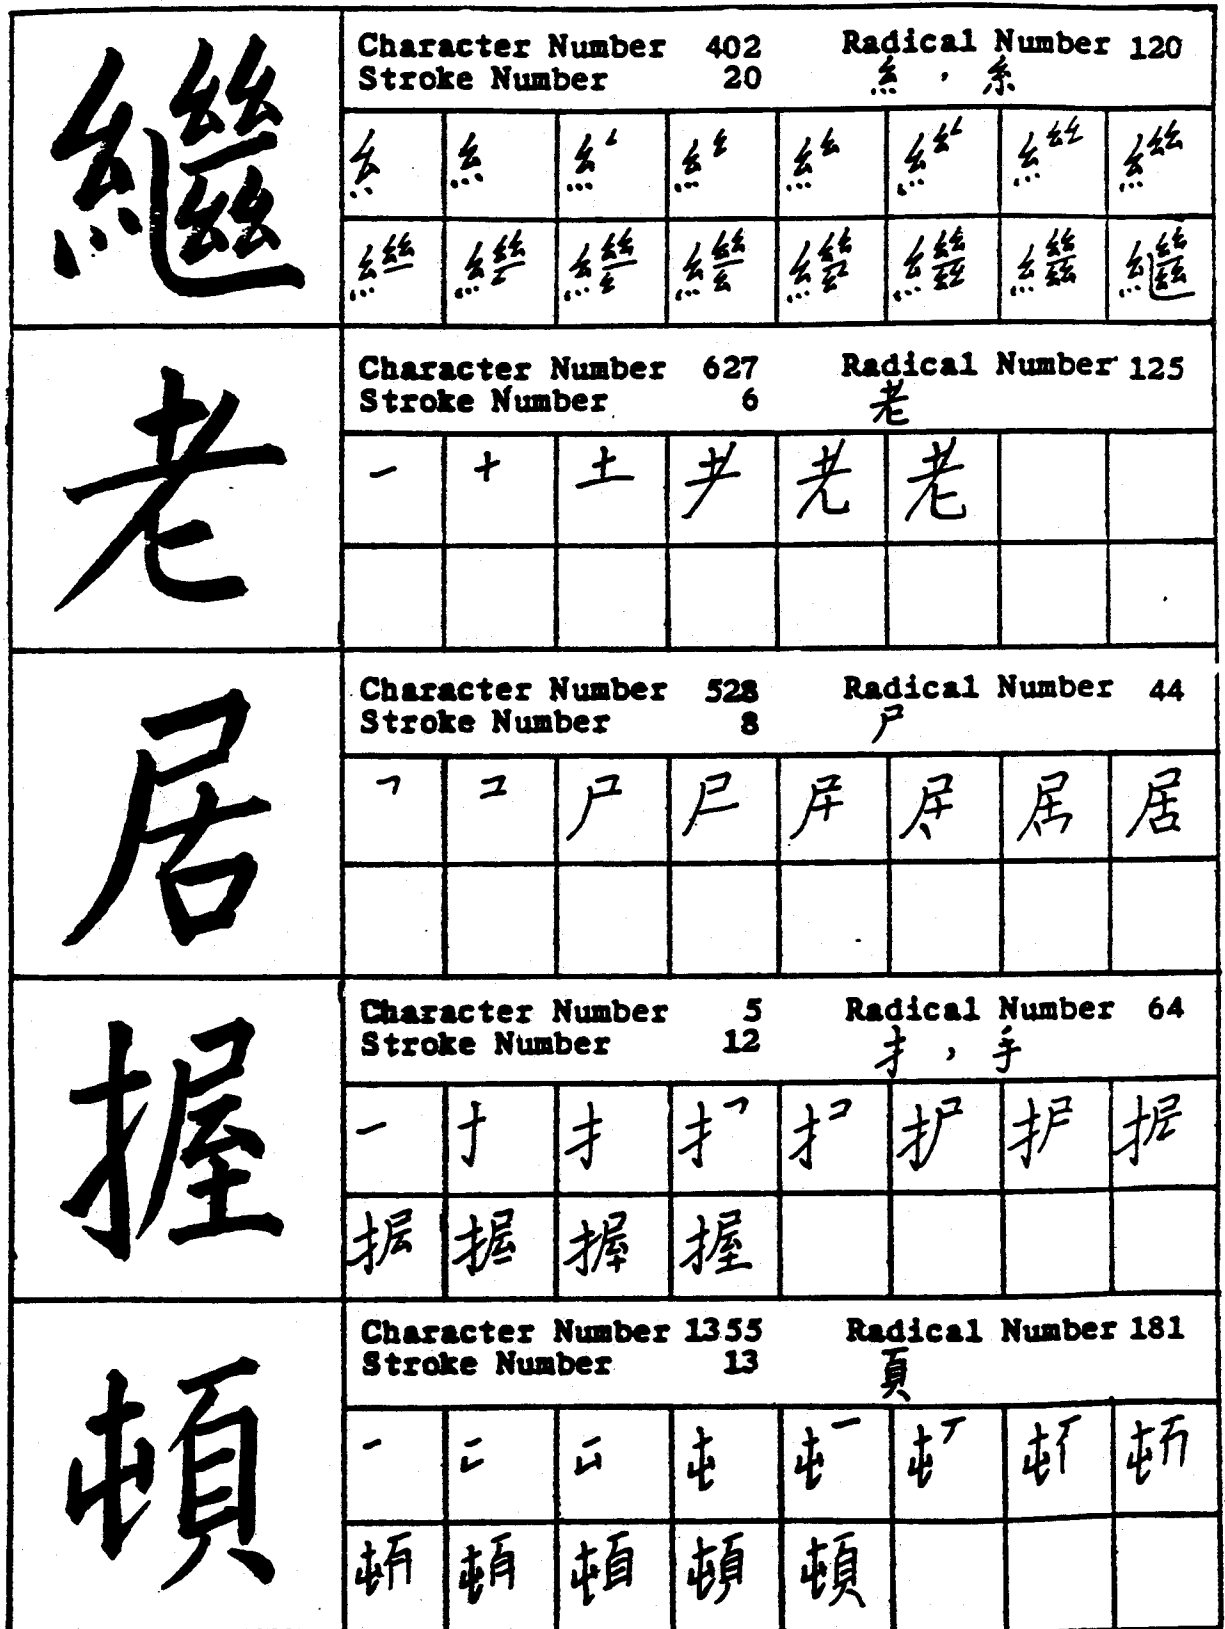 繼
Character Number 402 Radical Number 120
Stroke Number 20 糹 , 糸
老
Character Number 627 Radical Number 125
Stroke Number 6 老
一 十 土 耂
老
居
Character Number 528 Radical Number 44
Stroke Number 8 尸
居
握
Character Number 5 Radical Number 64
Stroke Number 12 扌 , 手
一 扌
握
頓
Character Number 1355 Radical Number 181
Stroke Number 13 頁
一 屯
頓